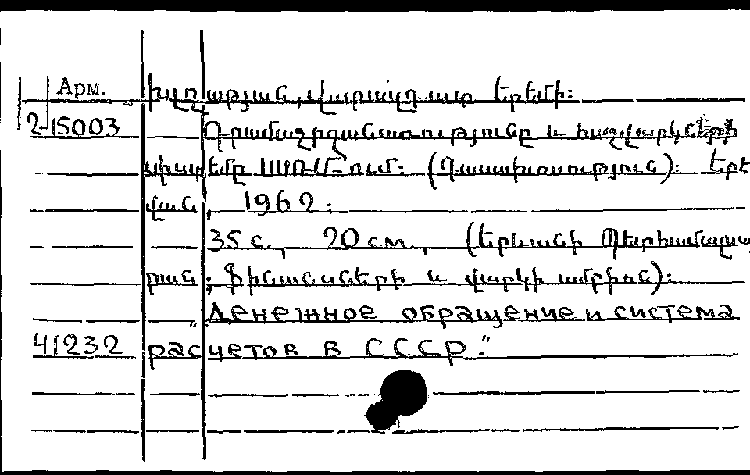 Арм. Խլղաթյան, Վարազդատ Երեմի:
2-15003 Դրամաշրջանառությունը և հաշվարկների
սիստեմը ՍՍՌՄ-ում: (Դասախոսություն): Երե
վան, 1962:
35 с., 20 см., (Երևանի Պետհամալսա
րան; Ֆինանսների և վարկի ամբիոն):
"Денежное обращение и система
41232 расчетов в СССР."